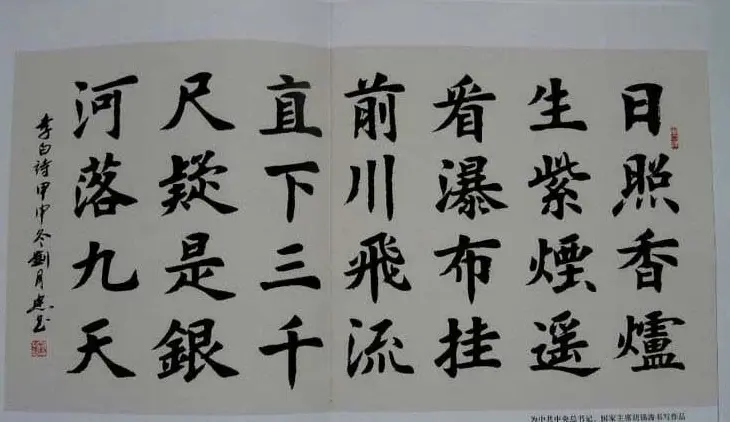 日照香爐
生紫煙遥
看瀑布挂
前川飛流
直下三千
尺疑是銀
河落九天
李白詩甲申冬劉月忠书
为中共中央总书记、国家主席胡锦涛书写作品